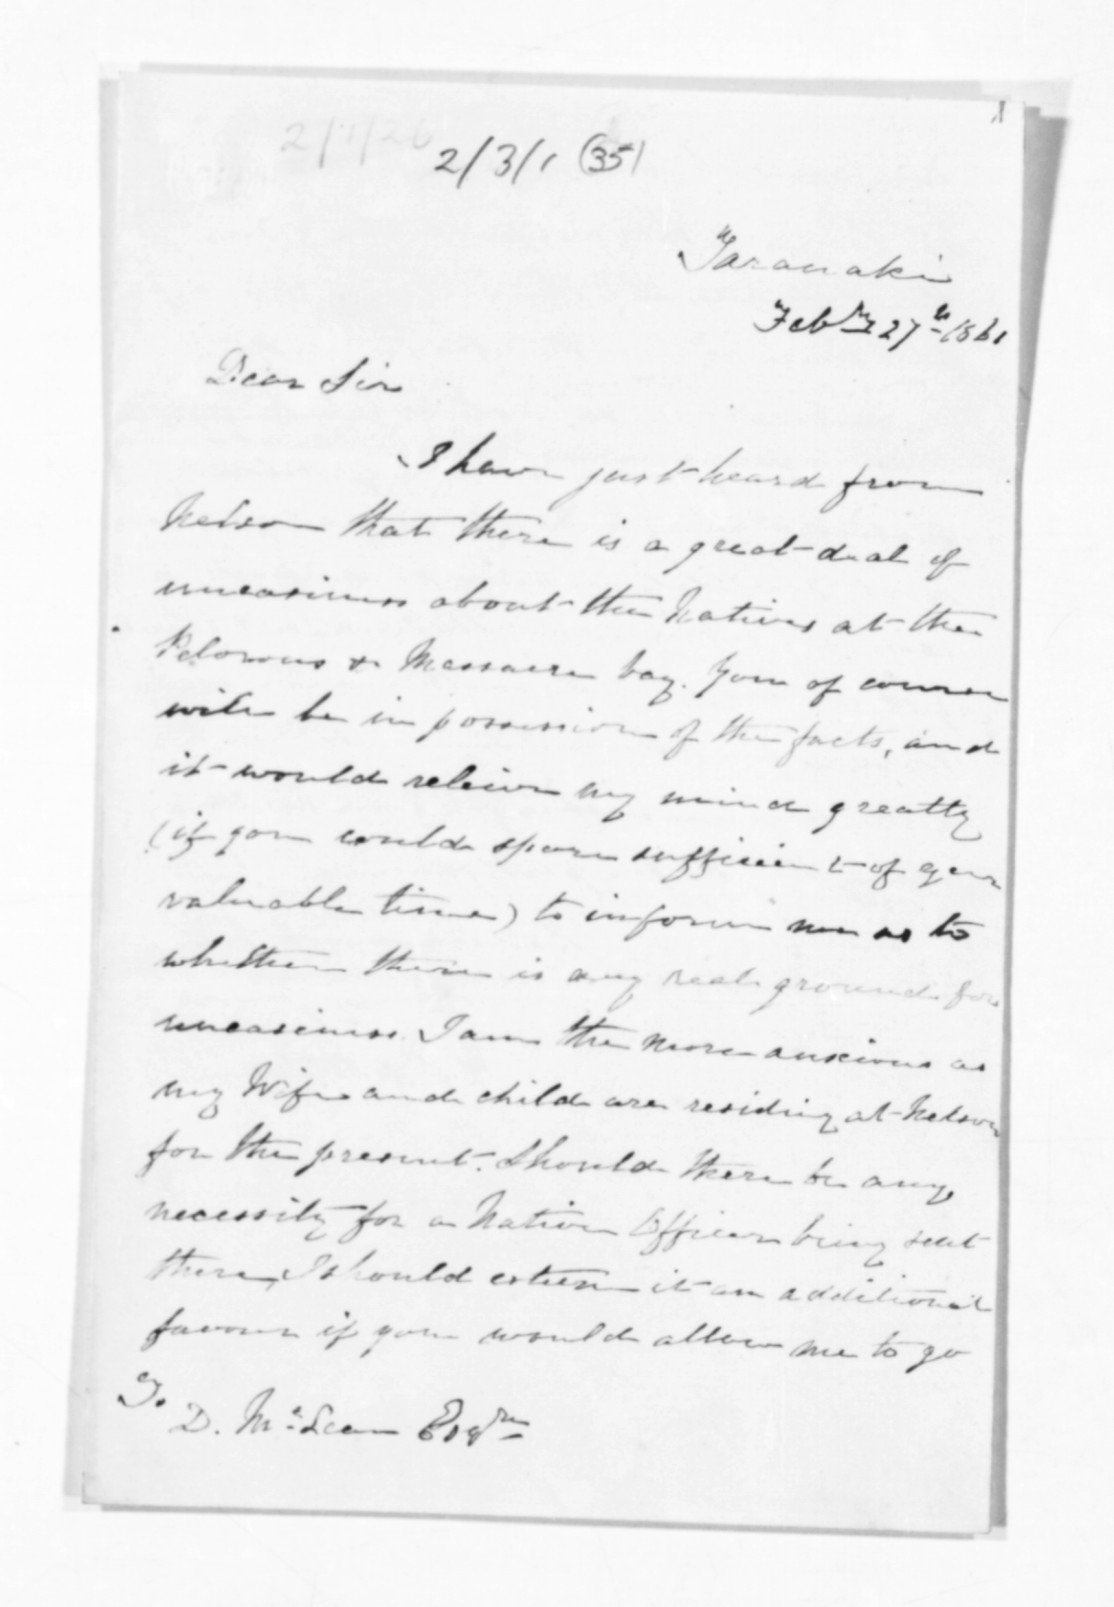 2/1/26
2/3/1 (35)
1
Taranaki
Feby 27th 1861
Dear Sir
I have just heard from
Nelson that there is a great deal of
uneasiness about the Natives at the
Pelorous & Massacre bay. You of course
will be in possession of the facts, and
it would releive my mind greatly
(if you could spare sufficient of your
valuable time) to inform me as to
whether there is any real ground for
uneasiness. I am the more anxious as
my Wife and child are residing at Nelson
for the present. Should there be any
necessity for a Native Officer being sent
there, I should esteem it an additional
favour if you would allow me to go
To
D. McLean Esqre